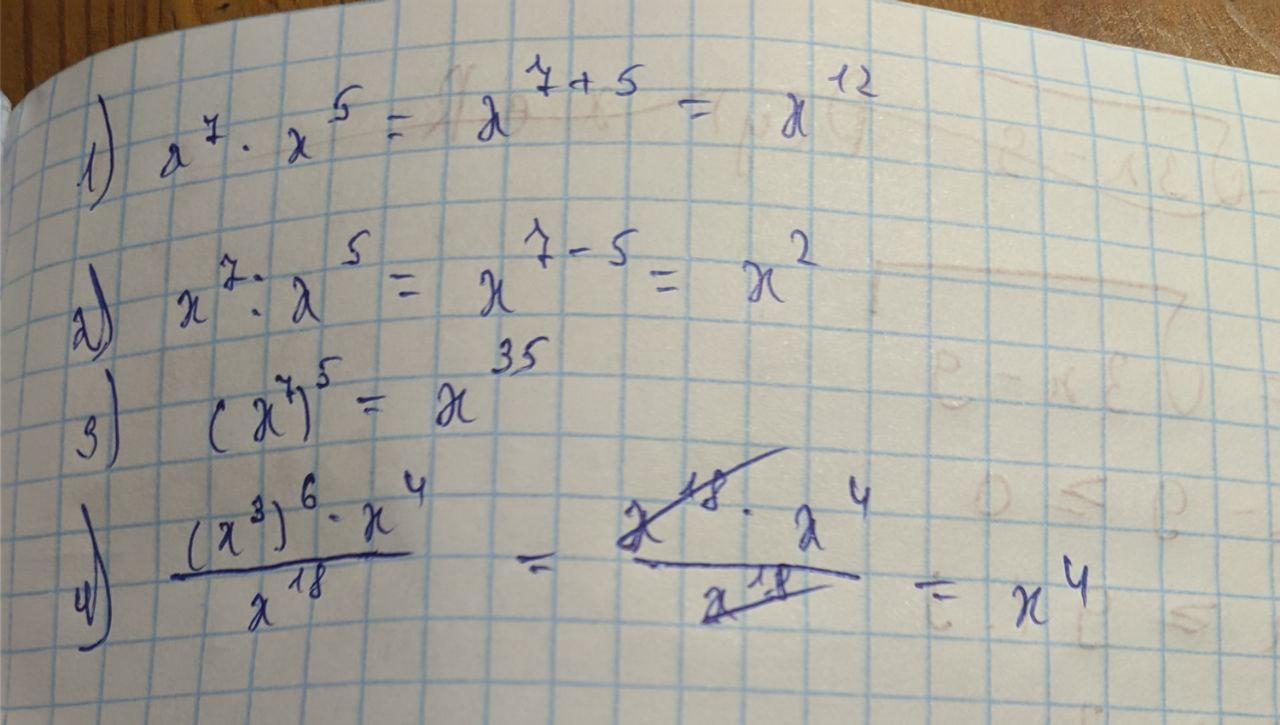 1) x⁷ · x⁵ = x⁷⁺⁵ = x¹²
2) x⁷ : x⁵ = x⁷⁻⁵ = x²
3) (x⁷)⁵ = x³⁵
4) ((x³)⁶ · x⁴)/x¹⁸ = (x¹⁸ · x⁴)/x¹⁸ = x⁴